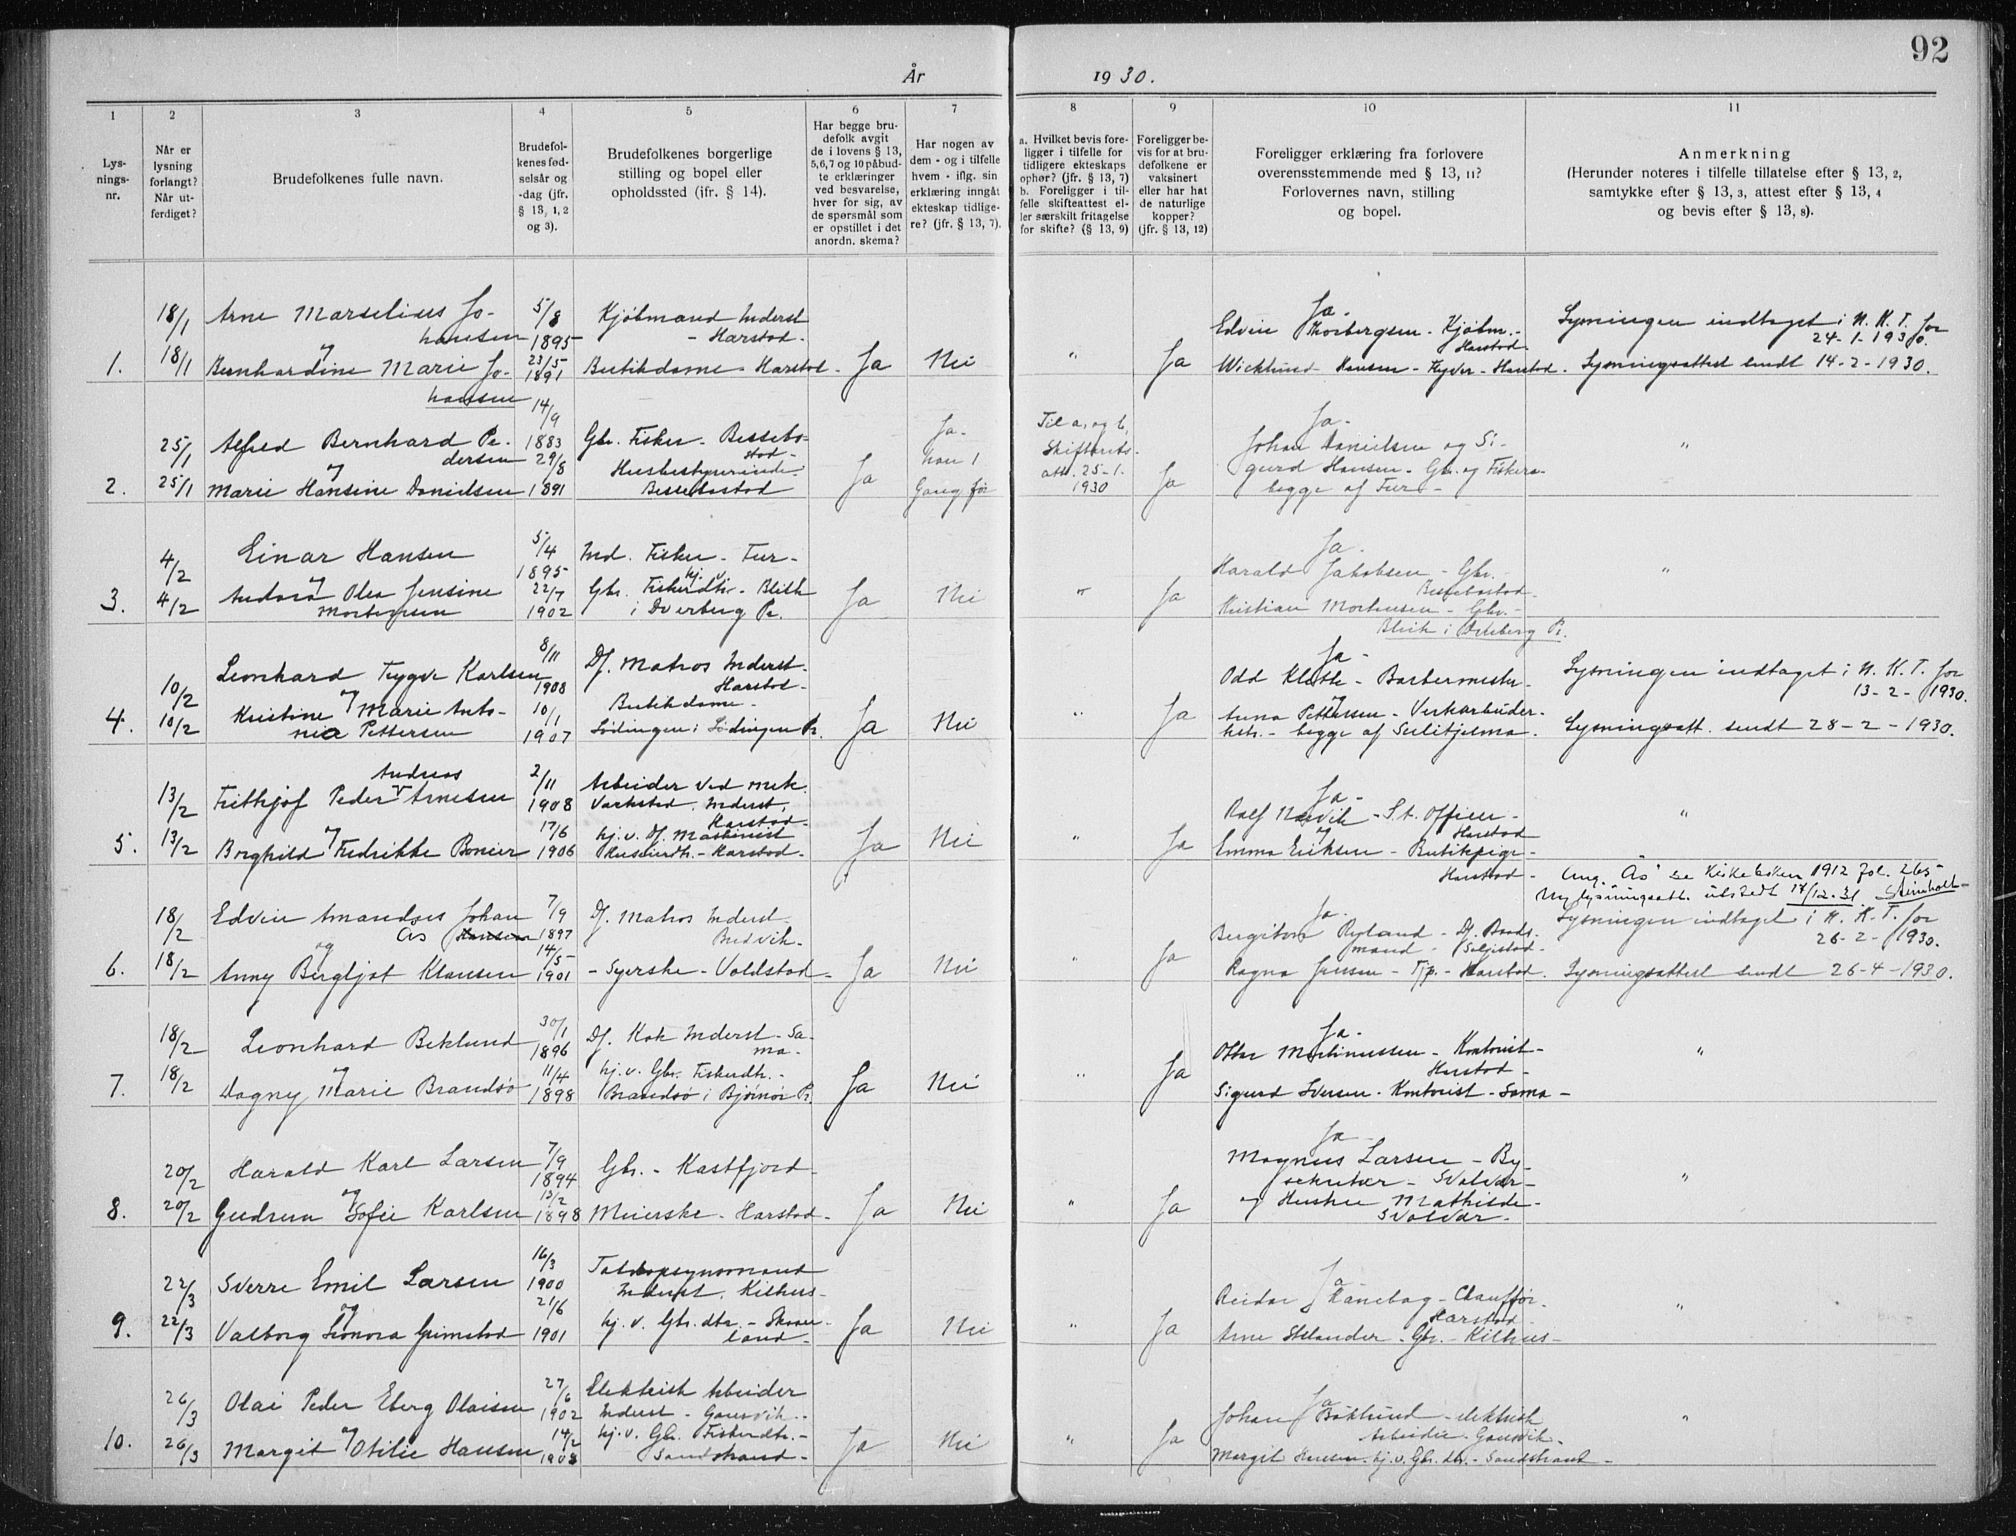 92
År 1930.
1 2 3 4 5 6 7 8 9 10 11
Lys-
nings-
nr.
Når er
lysning
forlangt?
Når ut-
ferdiget?
Brudefolkenes fulle navn.
Brudefol-
kenes fød-
selsår og
-dag (jfr.
§ 13, 1, 2
og 3).
Brudefolkenes borgerlige
stilling og bopel eller
opholdssted (jfr. § 14).
Har begge bru-
defolk avgit
de i lovens § 13,
5,6,7 og 10 påbud-
te erklæringer
ved besvarelse,
hver for sig, av
de spørsmål som
er opstillet i det
anordn. skema?
Har nogen av
dem - og i tilfelle
hvem - iflg. sin
erklæring inngått
ekteskap tidlige-
re? (jfr. § 13, 7).
a. Hvilket bevis fore-
ligger i tilfelle for
tidligere ekteskaps
ophør? (jfr. § 13, 7)
b. Foreligger i til-
felle skifteattest el-
ler særskilt fritagelse
for skifte? (§ 13, 9)
Foreligger be-
vis for at bru-
defolkene er
vaksinert
eller har hat
de naturlige
kopper?
(jfr. § 13, 12)
Foreligger erklæring fra forlovere
overensstemmende med § 13, 11?
Forlovernes navn, stilling
og bopel.
Anmerkning
(Herunder noteres i tilfelle tillatelse efter § 13, 2,
samtykke efter § 13, 3, attest efter § 13, 4
og bevis efter § 13, 8).
1.
18/1
18/1
Arne Marselius Jo-
hansen
og
Bernhardine Marie Jo-
hansen
5/8
1895
23/5
1891
Kjøbmand Inderst
- Harstad -
Butikdame - Harstad -
Ja
Nei
"
Ja
Ja -
Edvin Thorbergsen - Kjøbm. -
Harstad -
Wicklund Hansen - Harstad.
Lysningen indtaget i N. K. T. for
24-1-1930.
Lysningsattest sendt 14-2-1930.
2.
25/1
25/1
Alfred Bernhard Pe-
dersen
og
Marie Hansine Danielsen
14/9
1883
29/8
1891
Gbr. Fisker - Bessebo-
stad -
Husbestyrerinde
Bessebostad
Ja
Ja -
han 1
Gang før
Til a, og b,
Skifterets-
att. 25-1-
1930
Ja
Ja -
Johan Danielsen og Si-
gurd Hansen - Gbr. og Fiskere -
begge af Fur -
"
3.
4/2
4/2
Einar Hansen
og
Olea Jensine
Mortensen
5/4
1895
22/7
1902
Ind. Fisker - Fur -
hj. v.
Gbr. Fiskerdtr. - Bleik
i Dverberg Pr.
Ja
Nei
"
Ja
Ja -
Harald Jakobsen - Gbr. -
Bessebostad -
Kristian Mortensen - Gbr. -
Bleik i Dverberg Pr.
"
4.
10/2
10/2
Leonhard Trygve Karlsen
og
Kristine Marie Anto-
nia Pettersen
8/11
1908
10/1
1907
Df. Matros Inderst -
Harstad -
Butikdame -
Lødingen i Lødingen Pr.
Ja
Nei
"
Ja
Ja -
Odd Klette - Barbermester -
og
Anna Pettersen - Verkarbeider-
hstr. - begge af Sulitjelma.
Lysningen indtaget i N. K. T. for
13-2-1930.
Lysningsatt. sendt 28-2-1930.
5.
13/2
13/2
Andreas
Frithjof Peder Arnesen
og
Borghild Fredrikke Bonier
2/11
1908
17/6
1906
Arbeider ved mek.
Verksted. Inderst,
Harstad -
hj. v. Df. Maskinist
- Harstad -
Ja
Nei
"
Ja
Ja -
Ralf - St. Officer -
og Harstad
Emma Eriksen - Butikpige -
Harstad -
"
Ang. "Ås" se Kirkeboken 1912 fol. 265 -
Ny lysningsatt. utstedt 17/12-31. Steinholt -
6.
18/2
18/2
Edvin Amandus Johan
Ås Hansen
og
Anny Bergljot Klausen
7/9
1897
14/5
1901
Df. Matros Inderst -
- Syerske - Voldstad -
Ja
Nei
"
Ja
Ja -
Bergiton Ryland - Df. Baads-
mand -
Ragna Jensen - Tjp. - Harstad.
Lysningen indtaget i N. K. T. for
26-2-1930.
Lysningsattest sendt 26-4-1930.
7.
18/2
18/2
Leonhard Beklund
og
Dagny Marie Brandsø
30/1
1896
11/4
1898
Df. Kok Inderst - Sa-
ma -
hj. v. Gbr. Fiskerdtr. -
Brandsø i Bjørnør Pr.
Ja
Nei
"
Ja
Ja -
Ottar Martinussen - Kontorist -
Harstad -
Sigurd Iversen - Kontorist - Sama -
"
8.
20/2
20/2
Harald Karl Larsen
og
Gudrun Sofie Karlsen
7/9
1894
13/2
1898
Gbr. - Kastfjord -
Meierske - Harstad -
Ja
Nei
"
Ja
Ja -
Magnus Larsen - By-
sekretær - Svolvær -
og Hustru Mathilde -
Svolvær -
"
9.
22/3
22/3
Sverre Emil Larsen
og
Valborg Leonora Grimstad
16/3
1900
21/6
1901
Inderst, Kilhus -
hj. v. Gbr. dtr. -
land -
Ja
Nei
"
Ja
Ja -
Reidar Kanebog - Chauffør -
Harstad -
Arne Stelander - Gbr. - Kilhus -
"
10.
26/3
26/3
Olai Peder Eberg Olaisen
og
Margit Otilie Hansen
27/6
1902
14/2
1908
Elektrisk Arbeider
Inderst - Gausvik -
hj. v. Gbr. Fiskerdtr. -
Sandstrand -
Ja
Nei
"
Ja
Ja
Johan Bäklund - elektrisk
Arbeider - Gausvik -
Margit Hansen - hj. v. Gbr. dtr. - Sandstrand -
"